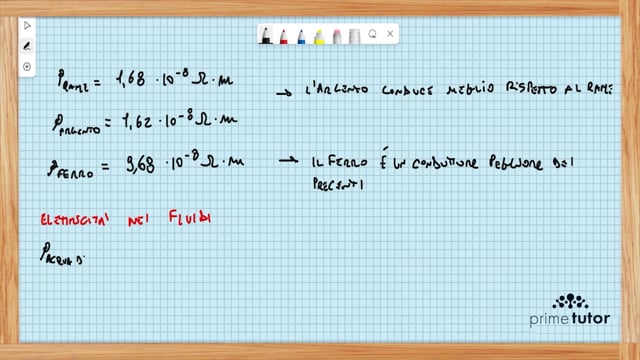 ρ RAME = 1,68 · 10⁻⁸ Ω · m → L'ARGENTO CONDUCE MEGLIO RISPETTO AL RAME
ρ ARGENTO = 1,62 · 10⁻⁸ Ω · m
ρ FERRO = 9,68 · 10⁻⁸ Ω · m → IL FERRO É UN CONDUTTORE PEGGIORE DEI
PRECENTI
ELETTRICITÀ NEI FLUIDI
ρ ACQUA D
prime tutor